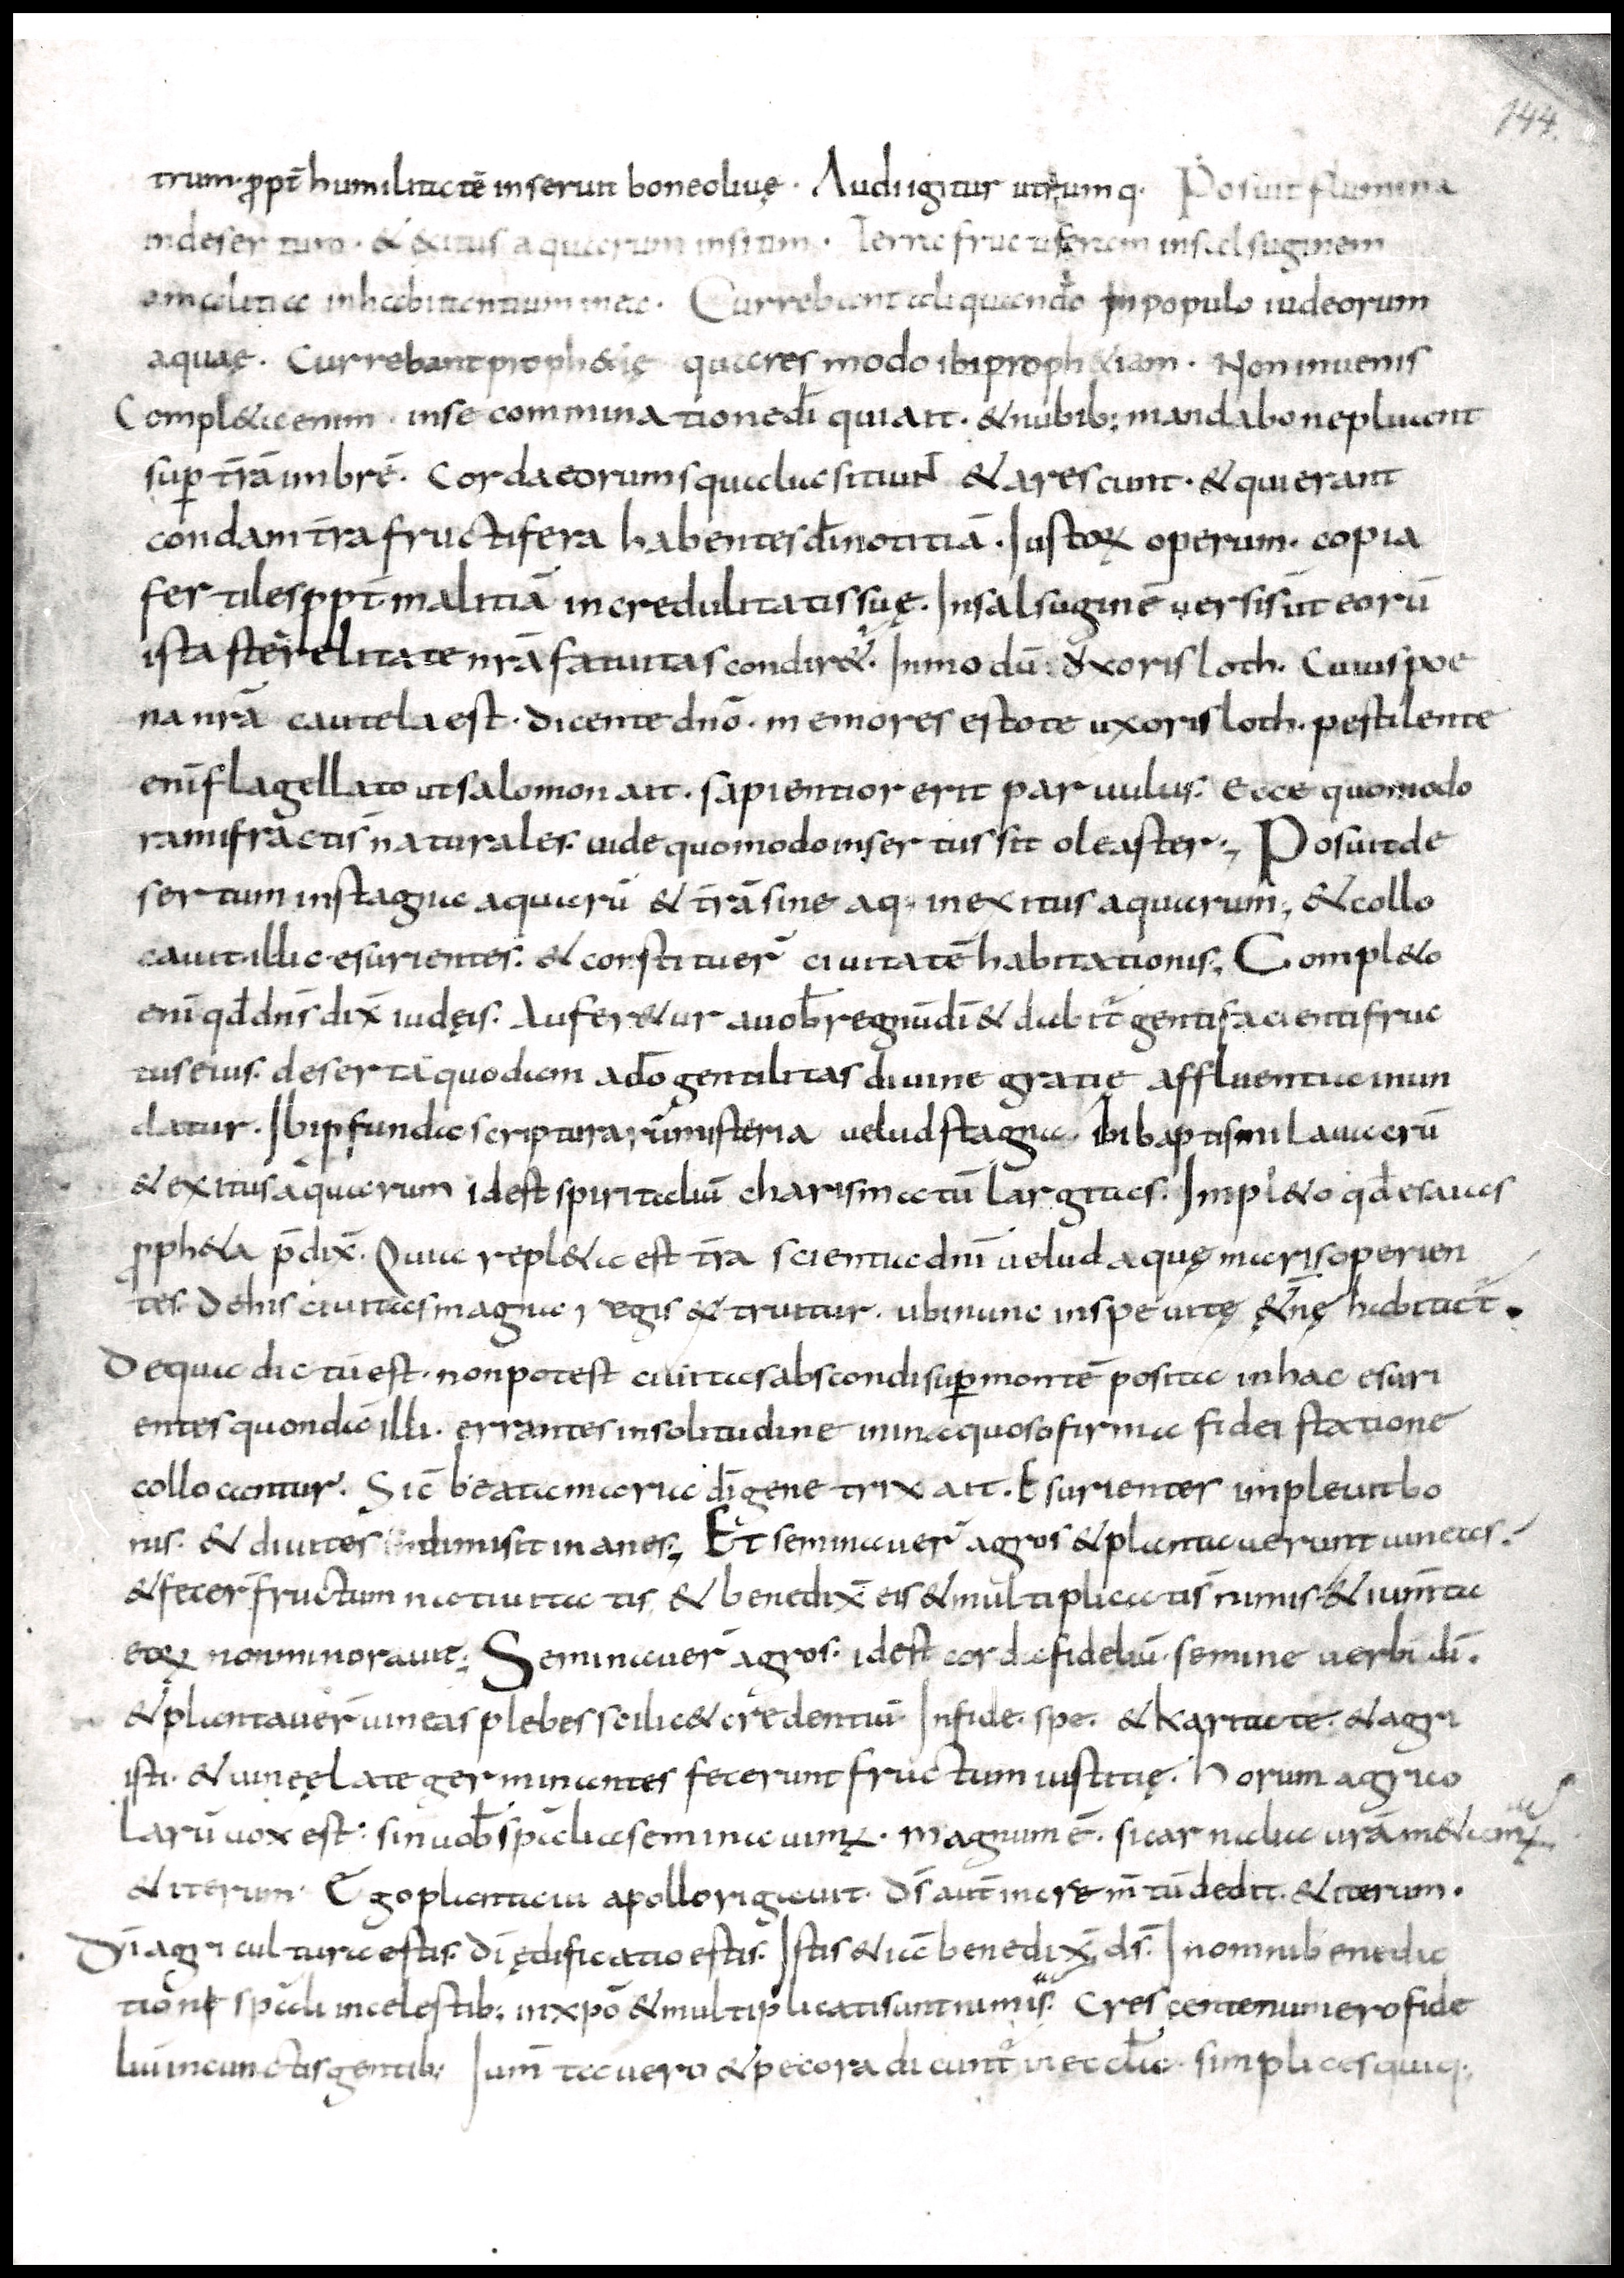 144.
trum· ꝓpt̄ humilitatē inserun boneolivę · Audi igitur utrumq· Posuit flumina
indesertum · & exitus aquarum insitim · Terra fructiferam insalsuginem
amalitia inhabitantium inea · Currebant aliquando in populo iudeorum
aquaę · Currebant proph&ię quaeres modo ibi proph&iam · Non invenis
Compl&a enim · inse comminationedī qui ait · & nubib; mandabo nepluant
suꝑ tr̄ā imbrē · Corda eorum squalua sitiunt & arescunt · & qui erant
condam tr̄a fructifera habentes dī notitiā · Iustoꝝ operum · copia
fertiles ppt̄ malitiā incredulitatis suę · Insalsuginē versi sūt eorū
ista sterelitate nr̄a fatuitas condir&ur · Inmodū uxoris loth · Cuius poe
na nr̄ā cautela est · dicente dnō · memores estote uxoris loth · pestilente
enī flagellato ut salomon ait · sapientior erit parvulus · Ecce quomodo
rami fracti s̄ naturales · vide quomodo insertus sit oleaster ·, Posuit de
sertum instagna aquarū & tr̄ā sine aq· inexitus aquarum ·, & collo
cavit illic esurientes · & constituer̄ civitatē habitationis ·, Compl&o
enī qđ dn̄s dix̄ iudęis · Aufer&ur avob̄ regnū dī & dabit̄ gentifacienti fruc
tus eius · deserta quodam ado gentilitas divine gratię affluentia mun
datur · Ibi ꝓfunda scripturarū misteria velud stagna · Ibi baptismi lavacrū
& exitus aquarum id est spiritaliū charismatū largitas · Impl&o qđ esaias
ꝓph&a p̄dix̄ · Quia repl&a est tr̄a scientia dnī velud aquę maris operien
tes · Dehis civitas magna regis &truitur · ubi nunc inspe vitę &nę habitat̄ ·
De qua dictū est · non potest civitas abscondi suꝑ montē posita inhac esuri
entes quondā illi · errantes insolitudine inināquoso firma fidei statione
collocantur · Sic̄ beata maria dī genetrix ait · Esurientes implevit bo
nis · & divites dimisit inanes ·, Et seminaver̄ agros & plantaverunt vineas ·
& fecer̄ fructum nativitatis & benedix̄ eis & multiplicati s̄ nimis · & ium̄ta
eoꝝ nonminoravit ·, Seminaver̄ agros · id est corda fideliū · semine verbi dī ·
& plantaver̄ vineas plebes scilic& credentiū Infide · spe · & karitate · & agri
isti · & vineę late germinantes fecerunt fructum iustitię · Horum agrico
larū vox est · sinvob̄ spīalia seminavimꝰ · magnum ē · sicarnalia vr̄ā m&amꝰ
& iterum · Ego plantavi apollo rigavit · dſ̄ aut̄ incrementū dedit · & iterum ·
Dī agricultura estis · dī ędificatio estis · Istis &iā benedix̄ ds̄ · Inomni benedic
tione spīali incelestib; inxpō & multiplicati sunt nimis · Crescente numero fide
liū incunctis gentib; Ium̄ta vero & pecora dicunt̄ in ecclīa · simplices quiq;